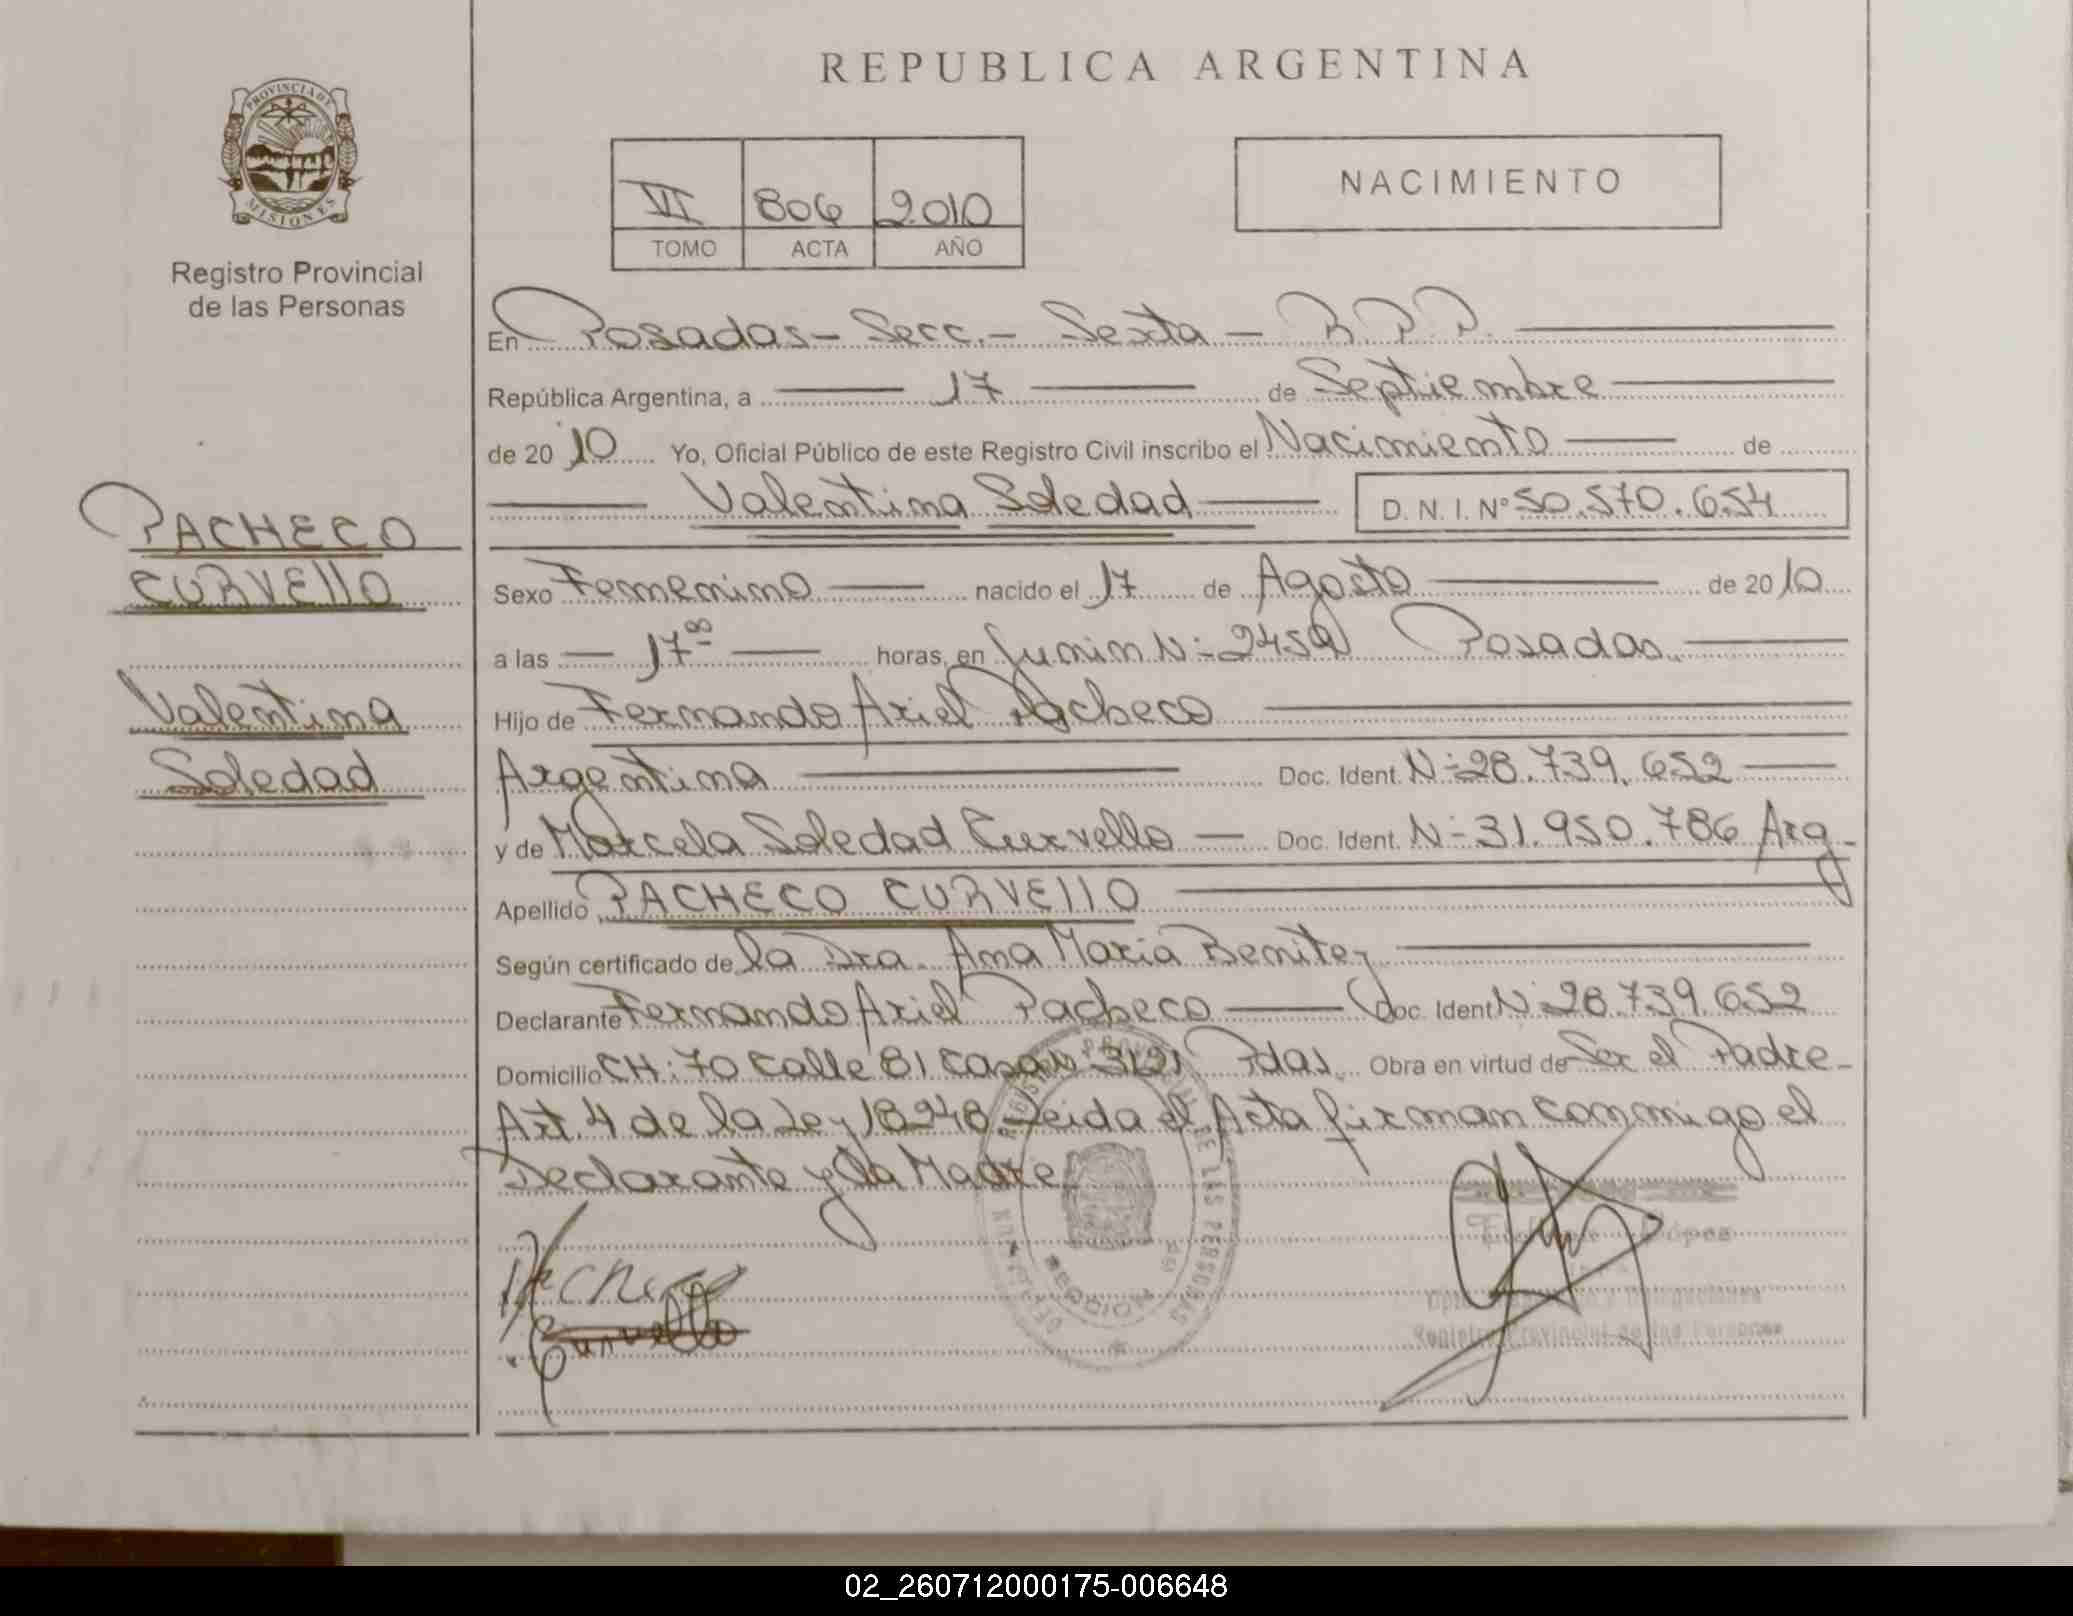 REPUBLICA ARGENTINA
PROVINCIA DE
MISIONES
Registro Provincial
de las Personas
VI 806 2010
TOMO ACTA AÑO
NACIMIENTO
En Posadas - Secc. - Sexta - R.P.P.
República Argentina, a 17 de Septiembre
de 2010 Yo, Oficial Público de este Registro Civil inscribo el Nacimiento de
Valentina Soledad D. N. I. N° 50.570.654
PACHECO
CURVELLO
Valentina
Soledad
Sexo Femenino nacido el 17 de Agosto de 2010
a las 17 00 horas, en Junin N- 2459 Posadas.
Hijo de Fernando Ariel Pacheco
Argentina Doc. Ident. N- 28.739.652
y de Marcela Soledad Curvello Doc. Ident. N- 31.950.786 Arg-
Apellido PACHECO CURVELLO
Según certificado de la Dra. Ana Maria Benitez
Declarante Fernando Ariel Pacheco Doc. Ident N- 28.739.652
Domicilio CH: 70 Calle 81 Casa Pdas. Obra en virtud de Ser el Padre-
Art. 4 de la Ley 18248 Leida el Acta firman conmigo el
Declarante y la Madre
Pacheco
Curvello
DE LAS PERSONAS
SECCION
López
Registro Provincial de las Personas
02_260712000175-006648